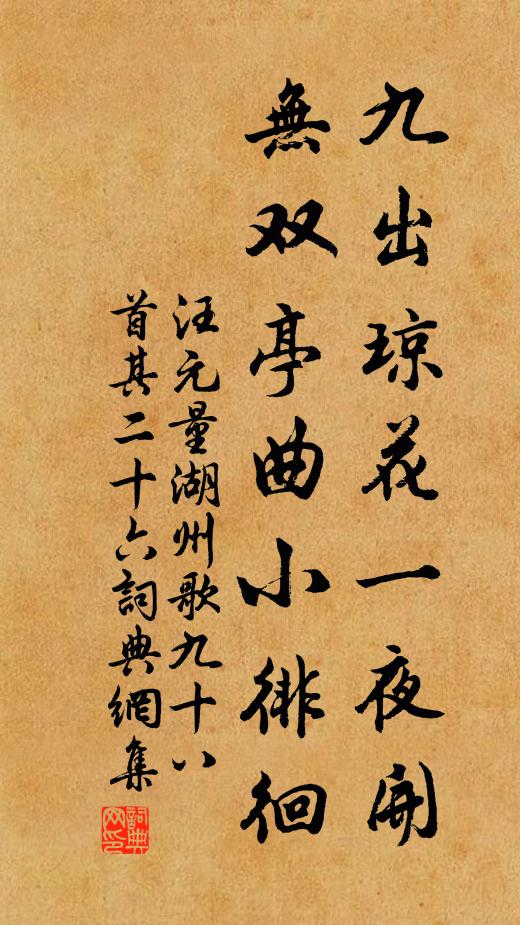 九出琼花一夜開
無双亭曲小徘徊
汪元量湖州歌九十八
首其二十六詞典網集
詞典网印